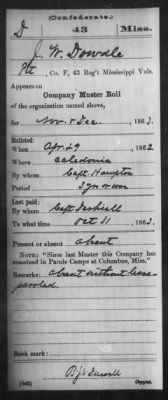 (Confederate.)
D 43 Miss.
J. W. Dowdle
Pvt, Co. F, 43 Reg't Mississippi Vols.
Appears on
Company Muster Roll
of the organization named above,
for Nov. & Dec., 1863.
Enlisted:
When Apr 29, 1862.
Where Caledonia
By whom Capt Hampton
Period 3 yrs or war
Last paid:
By whom Capt
To what time Oct 31, 1863.
Present or absent absent
NOTE: "Since last Muster this Company has
remained in Parole Camps at Columbus, Miss."
Remarks: absent without leave
paroled
Book mark:
(642) Copyist.